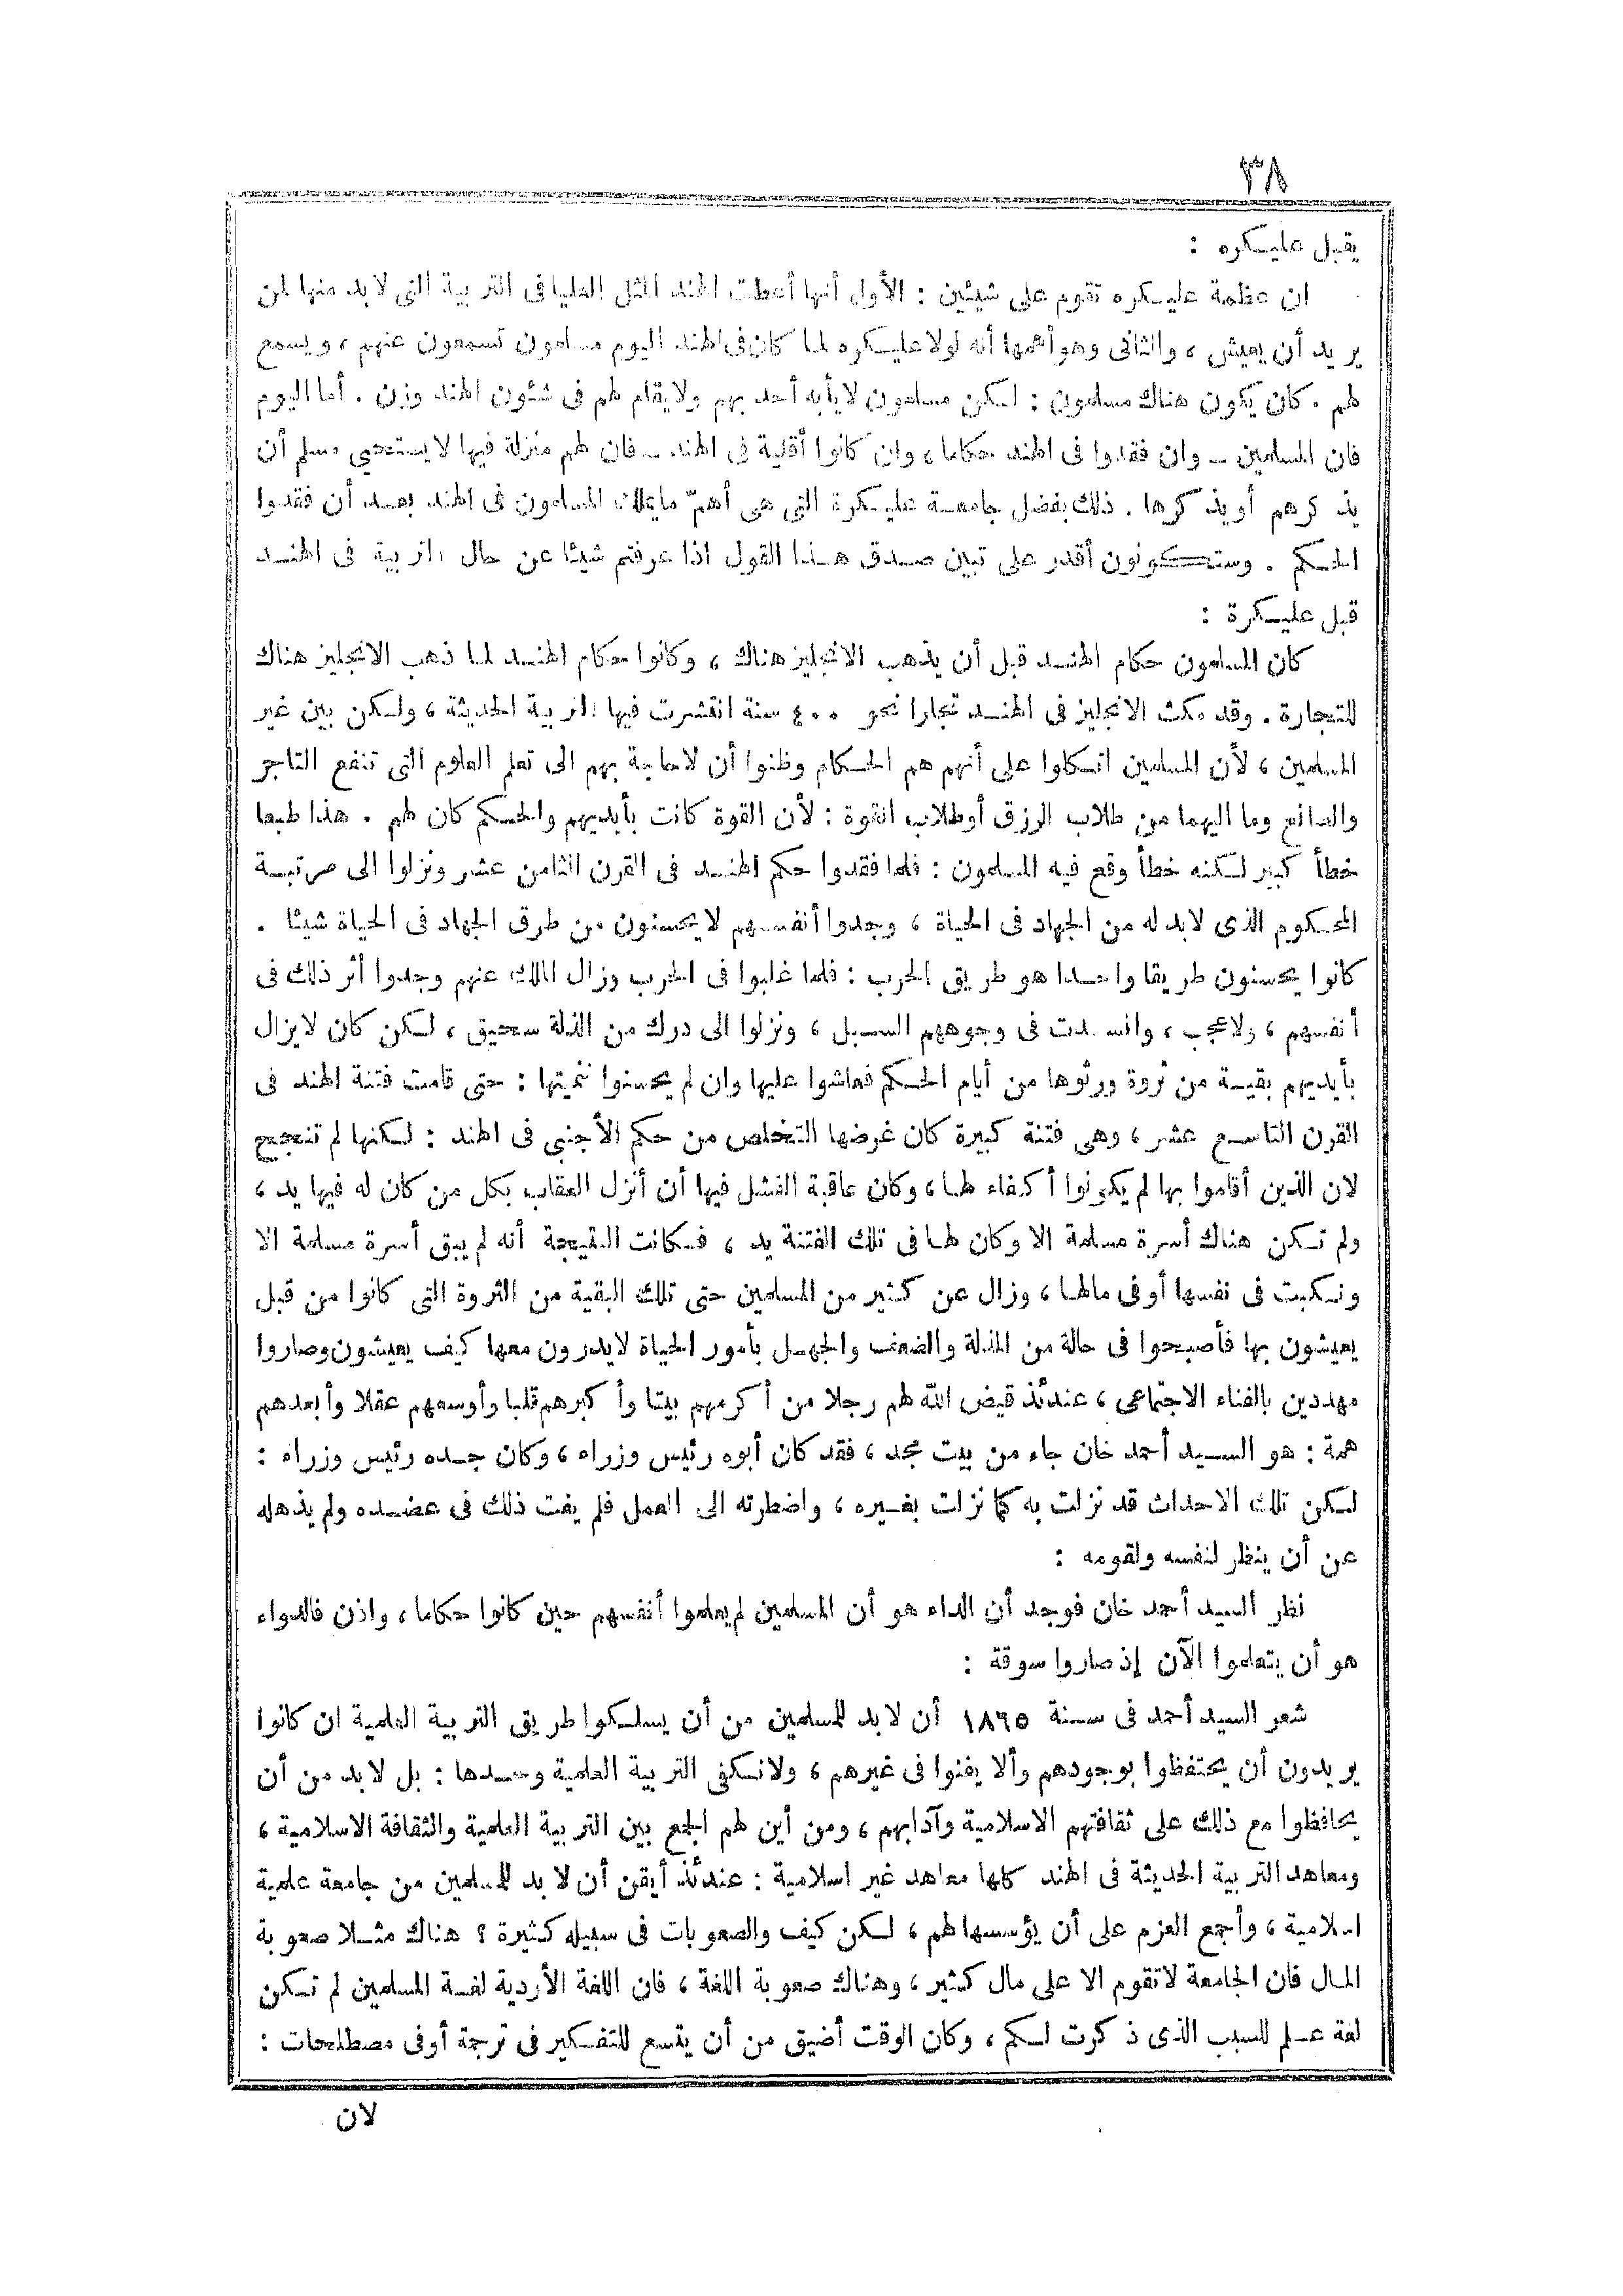 ٣٨
يقبل عليكره :
ان عظمة عليكره تقوم على شيئين : الأول أنها أعطت الهند المثل العليا فى التربية التى لابد منها لمن
يريد أن يعيش ، والثانى وهو أهمها أنه لولا عليكره لما كان فى الهند اليوم مسلمون تسمعون عنهم ، ويسمع
لهم . كان يكون هناك مسلمون : لكن مسلمون لا يأبه أحد بهم ولا يقام لهم فى شئون الهند وزن . أما اليوم
فان المسلمين ــ وان فقدوا فى الهند حكاما ، وان كانوا أقلية فى الهند ــ فان لهم منزلة فيها لا يستحيي مسلم أن
يذكرهم أو يذكرها . ذلك بفضل جامعة عليكرة التى هى أهمّ ما يملك المسلمون فى الهند بعد أن فقدوا
الحكم . وستكونون أقدر على تبين صدق هذا القول اذا عرفتم شيئا عن حال التربية فى الهند
قبل عليكرة :
كان المسلمون حكام الهند قبل أن يذهب الانجليز هناك ، وكانوا حكام الهند لما ذهب الانجليز هناك
للتجارة . وقد مكث الانجليز فى الهند تجارا نحو ٤٠٠ سنة انتشرت فيها التربية الحديثة ، ولكن بين غير
المسلمين ، لأن المسلمين اتكلوا على أنهم هم الحكام وظنوا أن لاحاجة بهم الى تعلم العلوم التى تنفع التاجر
والصانع وما اليهما من طلاب الرزق أوطلاب القوة : لأن القوة كانت بأيديهم والحكم كان لهم . هذا طبعا
خطأ كبير لكنه خطأ وقع فيه المسلمون : فلما فقدوا حكم الهند فى القرن الثامن عشر ونزلوا الى مرتبة
المحكوم الذى لابد له من الجهاد فى الحياة ، وجدوا أنفسهم لا يحسنون من طرق الجهاد فى الحياة شيئا .
كانوا يحسنون طريقا واحدا هو طريق الحرب : فلما غلبوا فى الحرب وزال الملك عنهم وجدوا أثر ذلك فى
أنفسهم ، ولاعجب ، وانسدت فى وجوههم السبل ، ونزلوا الى درك من الذلة سحيق ، لكن كان لايزال
بأيديهم بقية من ثروة ورثوها من أيام الحكم فعاشوا عليها وان لم يحسنوا تنميتها : حتى قامت فتنة الهند فى
القرن التاسع عشر ، وهى فتنة كبيرة كان غرضها التخلص من حكم الأجنبى فى الهند : لكنها لم تنجح
لان الذين أقاموا بها لم يكونوا أكفاء لها ، وكان عاقبة الفشل فيها أن أنزل العقاب بكل من كان له فيها يد ،
ولم تكن هناك أسرة مسلمة الا وكان لها فى تلك الفتنة يد ، فكانت النتيجة أنه لم يبق أسرة مسلمة الا
ونكبت فى نفسها أوفى مالها ، وزال عن كثير من المسلمين حتى تلك البقية من الثروة التى كانوا من قبل
يعيشون بها فأصبحوا فى حالة من المذلة والضعف والجهل بأمور الحياة لايدرون معها كيف يعيشون وصاروا
مهددين بالفناء الاجتماعى ، عندئذ قيض الله لهم رجلا من أكرمهم بيتا وأكبرهم قلبا وأوسعهم عقلا وأبعدهم
همة : هو السيد أحمد خان جاء من بيت مجد ، فقد كان أبوه رئيس وزراء ، وكان جده رئيس وزراء :
لكن تلك الاحداث قد نزلت به كما نزلت بغيره ، واضطرته الى العمل فلم يفت ذلك فى عضده ولم يذهله
عن أن ينظر لنفسه ولقومه :
نظر السيد أحمد خان فوجد أن الداء هو أن المسلمين لم يعلموا أنفسهم حين كانوا حكاما ، واذن فالدواء
هو أن يتعلموا الآن إذ صاروا سوقة :
شعر السيد أحمد فى سنة ١٨٩٥ أن لابد للمسلمين من أن يسلكوا طريق التربية العلمية ان كانوا
يريدون أن يحتفظوا بوجودهم وألا يفنوا فى غيرهم ، ولاتكفى التربية العلمية وحدها : بل لابد من أن
يحافظوا مع ذلك على ثقافتهم الاسلامية وآدابهم ، ومن أين لهم الجمع بين التربية العلمية والثقافة الاسلامية ،
ومعاهد التربية الحديثة فى الهند كلها معاهد غير اسلامية : عندئذ أيقن أن لابد للمسلمين من جامعة علمية
اسلامية ، وأجمع العزم على أن يؤسسها لهم ، لكن كيف والصعوبات فى سبيله كثيرة ؟ هناك مثلا صعوبة
المال فان الجامعة لاتقوم الا على مال كثير ، وهناك صعوبة اللغة ، فان اللغة الأردية لغة المسلمين لم تكن
لغة علم للسبب الذى ذكرت لكم ، وكان الوقت أضيق من أن يتسع للتفكير فى ترجمة أوفى مصطلحات :
لان